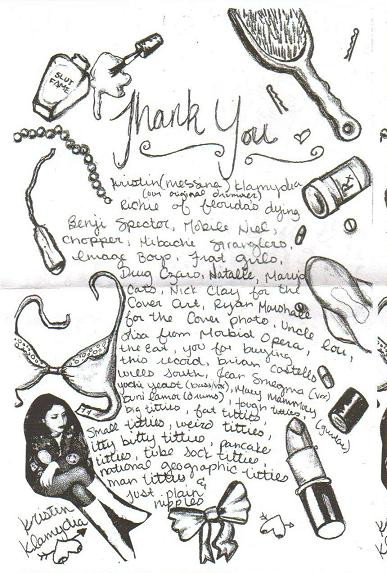 SLUT
FAME
Thank You
Kristin (Messina) Klamydia
(our original drummer)
Richie of Floridas Dying
Benji Spector, Mobile Niel,
Chopper, Hibachi Stranglers,
Image Boys, Frat Girls,
Doug Natalie,
Nick Clay for the
Cover Art, Ryan Marshall
for the Cover photo, Uncle Lou,
Lisa from Morbid Opera,
the Eat, you for buying
this record, Brian Costello
Wells South, Jean Smegma (vox)
Yeast (bass/vox), Mary Mammory (guitar)
(drums), tough titties
big titties, fat titties
Small titties, weird titties,
itty bitty titties, pancake
titties, tube sock titties,
national geographic titties
man titties &
just plain
nipples
Rx
Kristin
Klamydia